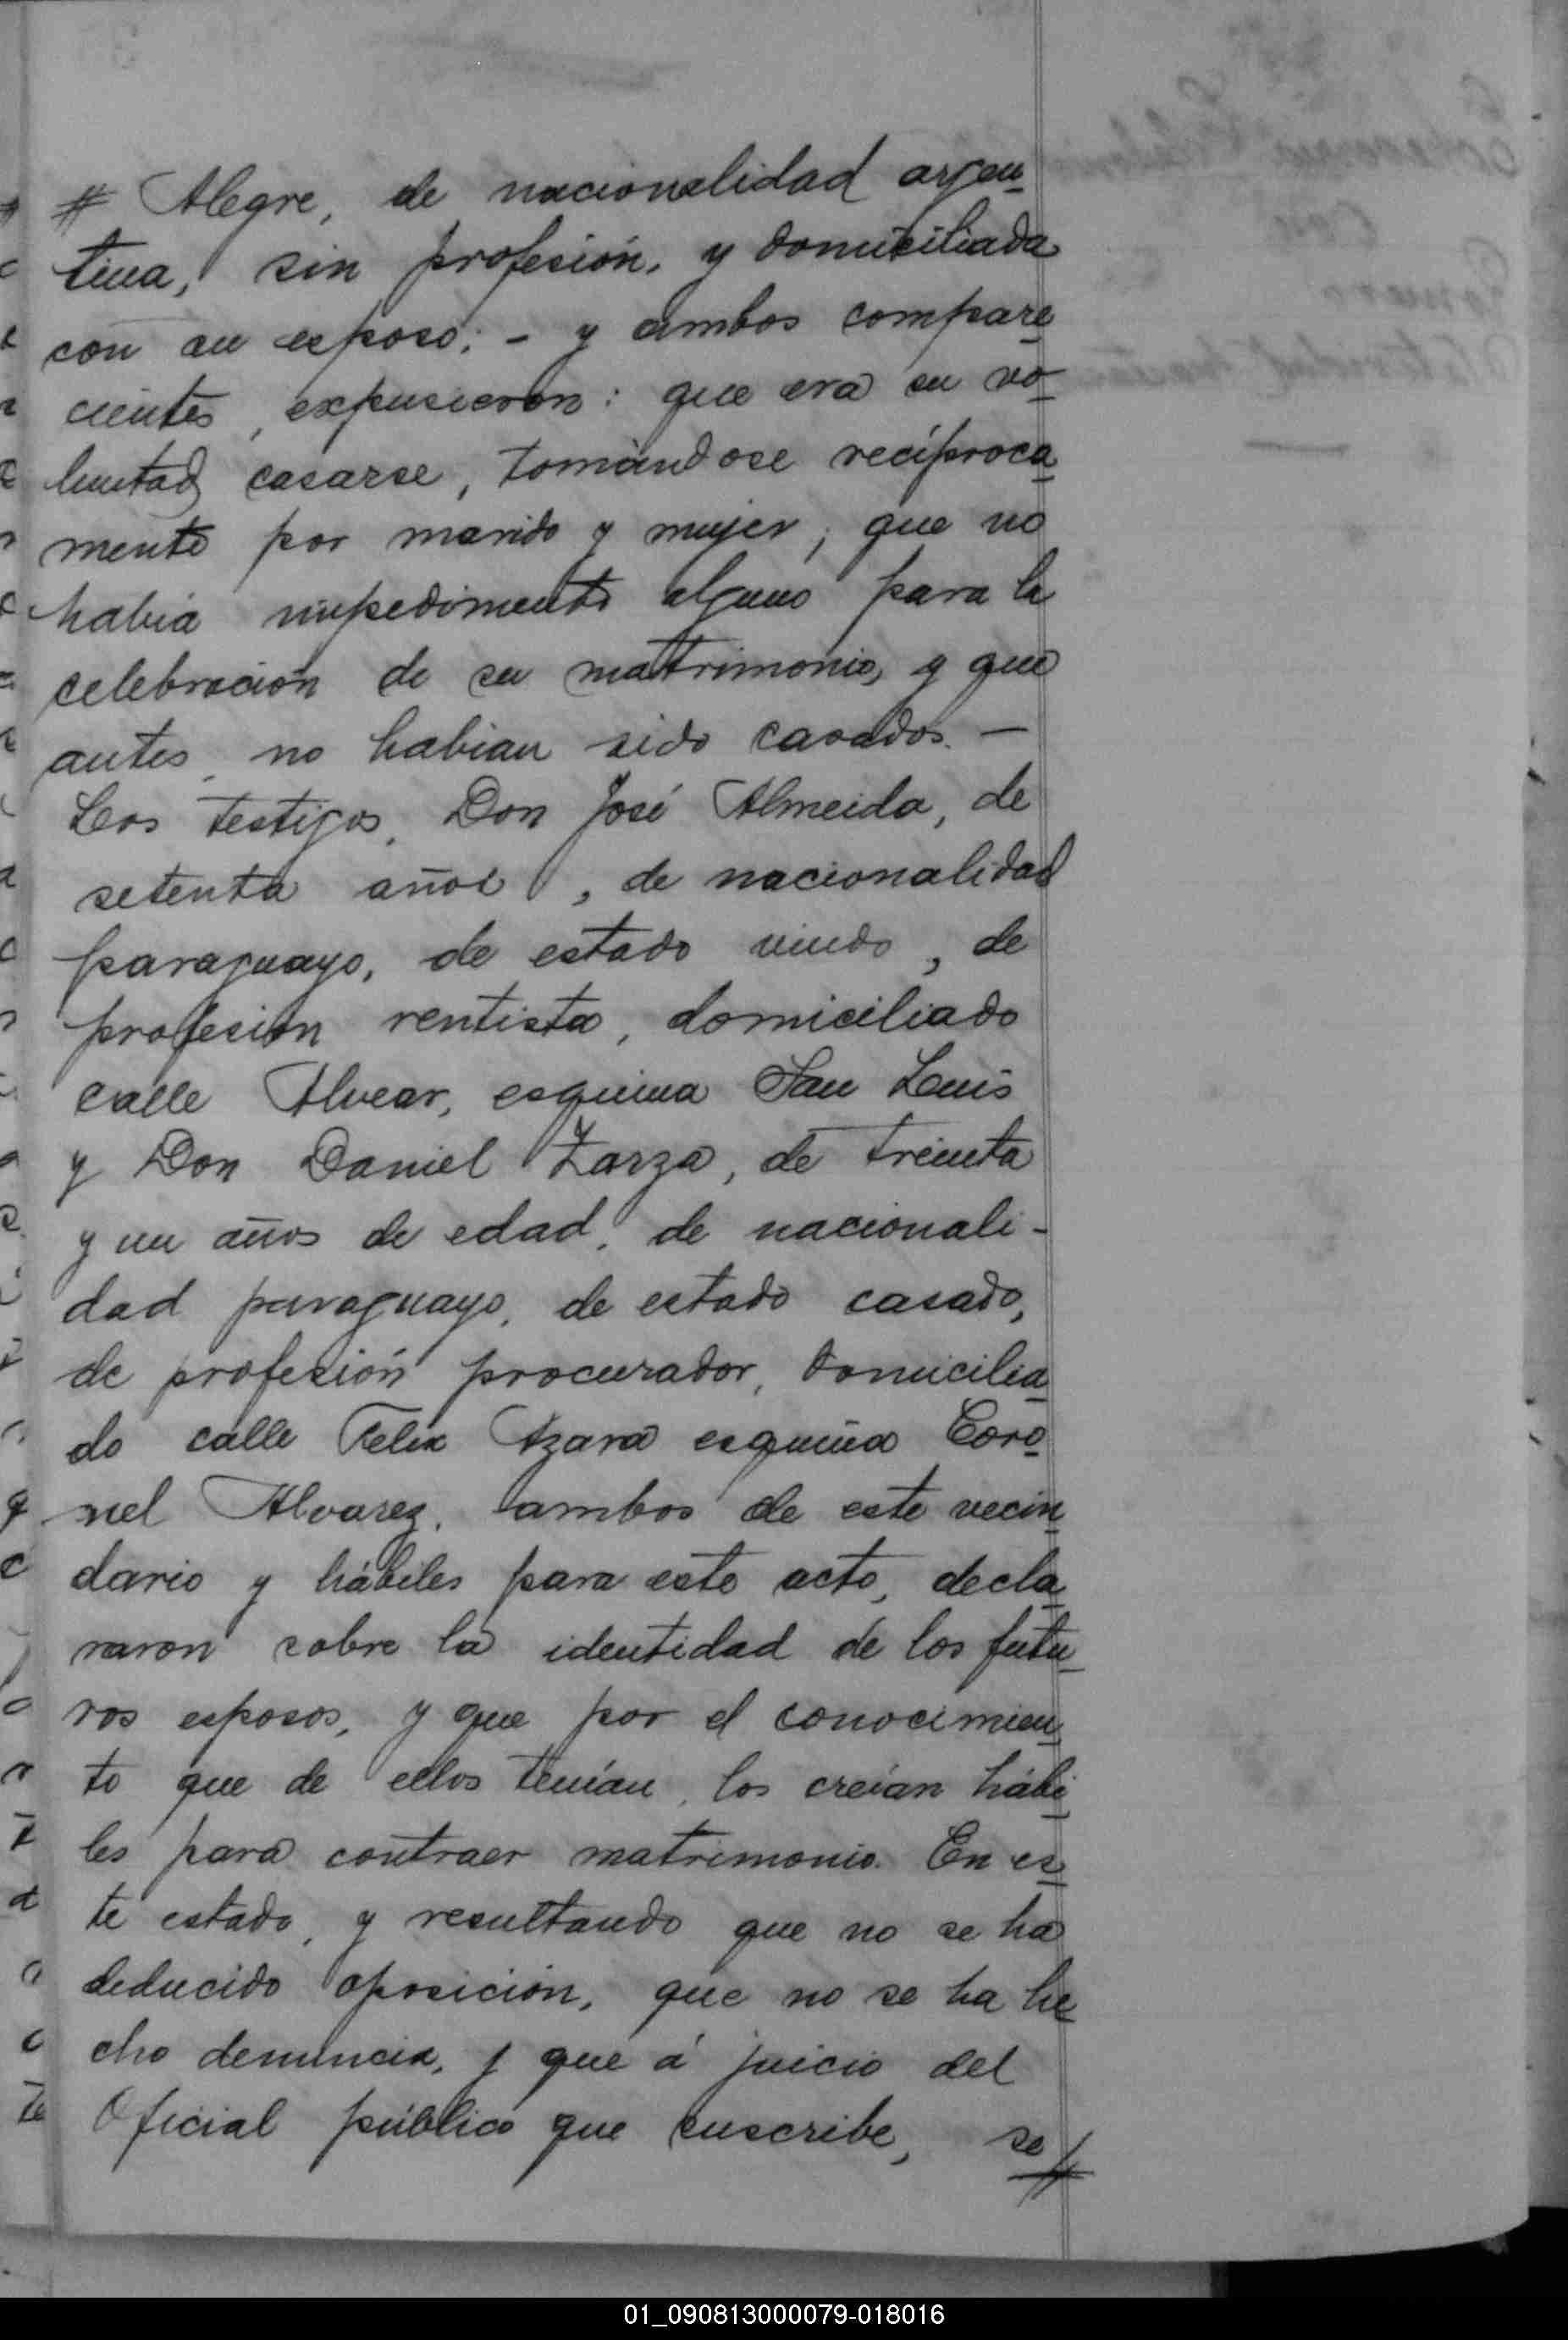 # Alegre, de nacionalidad argen-
tina, sin profesión, y domiciliada
con su esposo; - y ambos compare
cientes, expusieron: que era su vo
luntad casarse, tomándose recíproca
mente por marido y mujer; que no
había impedimento alguno para la
celebración de su matrimonio, y que
antes, no habian sido casados. —
Los testigos, Don José Almeida, de
setenta años, de nacionalidad
paraguayo, de estado viudo, de
profesión rentista, domiciliado
calle Alvear, esquina San Luis
y Don Daniel Zarza, de treinta
y un años de edad, de nacionali-
dad paraguayo, de estado casado,
de profesión procurador, domicilia
do calle Felix Azara esquina Coro
nel Alvarez, ambos de este vecin
dario y hábiles para este acto, decla
raron sobre la identidad de los futu
ros esposos, y que por el conocimien
to que de ellos tenían, los creían hábi
les para contraer matrimonio. En es
te estado, y resultando que no se ha
deducido oposición, que no se ha he
cho denuncia, y que á juicio del
Oficial público que suscribe, se #
01_090813000079-018016